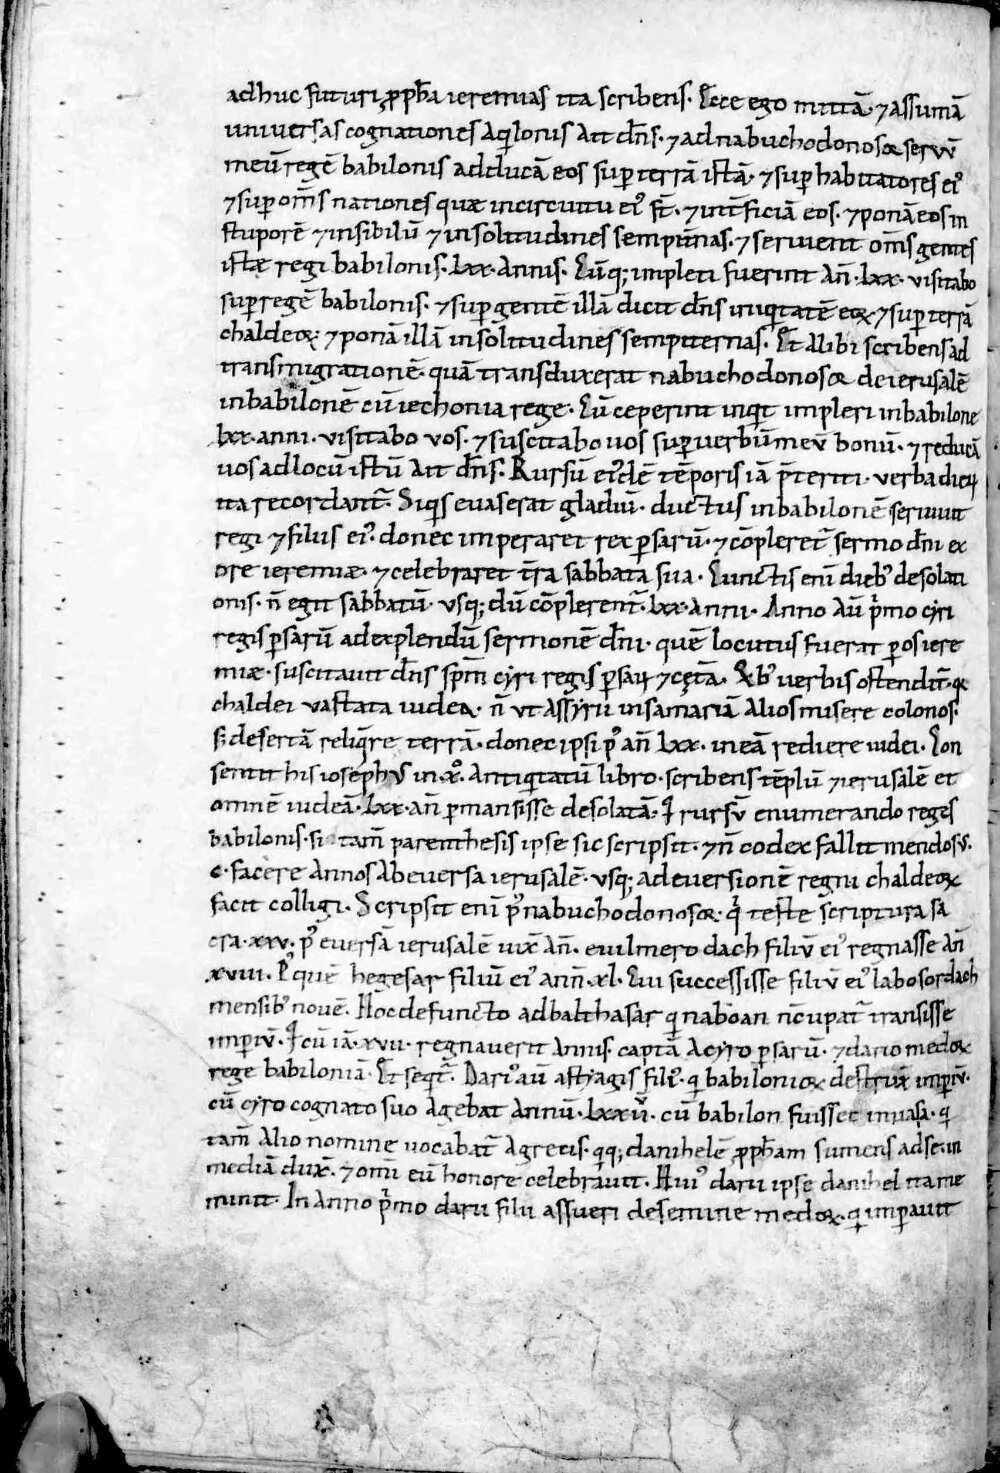 adhuc futuri ꝓph̄a ieremias ita scribens. Ecce ego mittā. ⁊ assumā
universas cognationes aq̇lonis ait dn̄s. ⁊ ad nabuchodonosoꝝ servū
meū regē babilonis adducā eos suꝑ terrā istā. ⁊ suꝑ habitatores ei᾿
⁊ suꝑ om̄s nationes quæ in circuitu ei᾿ s̄t. ⁊ int̄ficiā eos. ⁊ ponā eos in
stuporē ⁊ in sibilū ⁊ in solitudines sempit̄nas. ⁊ servient om̄s gentes
istę regi babilonis. lxx. annis. Cūq; impleti fuerint an̄. lxx. visitabo
suꝑ regē babilonis. ⁊ suꝑ gentē illā dicit dn̄s iniq̇tatē eoꝝ ⁊ suꝑ terrā
chaldeoꝝ; ⁊ ponā illā in solitudines sempiternas. Et alibi scribens ad
transmigrationē. quā transduxerat nabuchodonosoꝝ de ierusalē
in babilonē cū iechonia rege. Cū ceperint inquit impleri in babilone
lxx. anni. visitabo vos. ⁊ suscitabo vos suꝑ verbū meū bonū. ⁊ reducā
vos ad locū istū ait dn̄s. Rursū ei᾿dē tēporis iā p̄teriti. verba dieꝝ
ita recordant᷑. Siq̇s evaserat gladiū. ductus in babilonē servivit
regi ⁊ filiis ei᾿. donec imperaret rex ꝑsarū. ⁊ cōpleret᷑ sermo dn̄i ex
ore ieremiæ. ⁊ celebraret t̄ra sabbata sua. Cunctis eni dieb᾿ desolati
onis. n̄ egit sabbatū. usq; dū cōplerent᷑. lxx. anni. Anno aū p̄mo cyri
regis ꝑsarū ad explendū sermonē dn̄i. quē locutus fuerat ꝑ os iere
miæ. suscitavit dn̄s sp̄m cyri regis ꝑsaꝝ ⁊ cętā. Ex b᾿ verbis ostendit᷑. q
chaldei vastata iudea. n̄ ut assyrii in samariā alios misere colonos.
s; desertā reliq̇re terrā. donec ipsi p᾿ an̄ lxx. in eā rediere iudei. Con
sentit his ioseph᾿ in x᾿. antiq̇tatū libro. scribens tēplū ⁊ ierusalē et
omnē iudeā. lxx. an̄ ꝑmansisse desolatā. q rursū enumerando reges
babilonis. si tam̄ parenthesis ipse sic scripsit. ⁊ n̄ codex fallit mendos᾿.
c. facere annos ab eversa ierusalē. usq; ad eversionē regni chaldeoꝝ
facit colligi. Scripsit eni p᾿ nabuchodonosoꝝ. q̄ teste scriptura sa
cra. xxv. p᾿ eversā ierusalē vix̄ an̄. evilmerodach filiū ei᾿ regnasse an̄
xviii. P᾿ quē hegesar filiū ei᾿ ann̄. xl. Cui successisse filiū ei᾿ labosordach
mensib᾿ novē. Hoc defuncto ad balthasar qui naboan n̄cupat᷑ transisse
imꝑiū. q cū iā. xvii. regnaverit annis. captā a cyro ꝑsarū. ⁊ dario medoꝝ
rege babiloniā. Et seq̇t᷑. Dari᾿ aū astyagis fili᾿. q babilonioꝝ destrux̄ imꝑiū.
cū cyro cognato suo agebat annū. lxxii. cū babilon fuisset invasa. q
tam̄ alio nomine vocabat᷑ agretis. q̇q; danihelē ꝓph̄am sumens ad se. in
mediā dux̄. ⁊ omi eū honore celebravit. Hui᾿ darii ipse danihel ita me
minit. In anno p̄mo darii filii assueri de semine medoꝝ. q imꝑavit